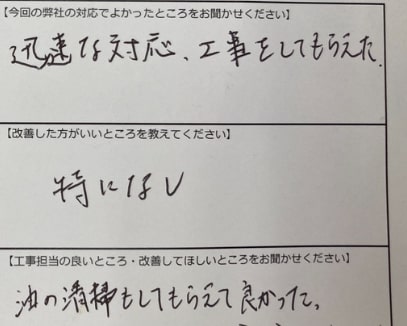 【今回の弊社の対応でよかったところをお聞かせください】
迅速な対応、工事をしてもらえた.
【改善した方がいいところを教えてください】
特になし
【工事担当の良いところ・改善してほしいところをお聞かせください】
油の清掃もしてもらえて良かった。